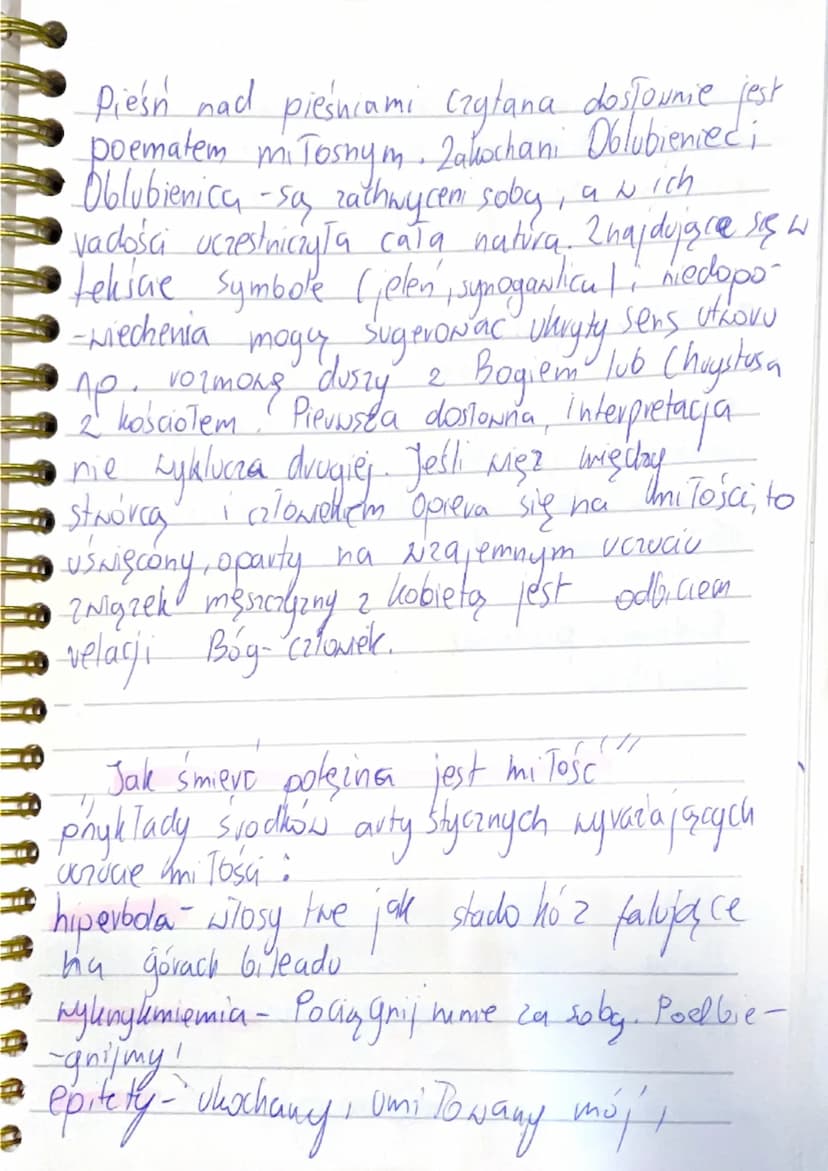 Pieśń nad pieśniami czytana dosłownie jest
poematem miłosnym. Zakochani Oblubieniec i
Oblubienica - są zachwyceni sobą, a w ich
radości uczestniczyła cała natura. Znajdujące się w
tekście symbole (jeleń, synogarlica) i niedopo-
-wiedzenia mogą sugerować ukryty sens utworu
np. rozmowę duszy z Bogiem lub Chrystusa
z kościołem. Pierwsza dosłowna, interpretacja
nie wyklucza drugiej. Jeśli więź między
stwórcą i człowiekiem opiera się na miłości, to
uświęcony, oparty na wzajemnym uczuciu
związek męszczyzny z kobietą jest odbiciem
relacji Bóg-człowiek.
„Jak śmierć potężna jest miłość”
przykłady środków artystycznych wyrażających
uczucie miłości:
hiperbola - włosy twe jak stado kóz falujące
na górach Gileadu
wykrzyknienia - Pociągnij mnie za sobą. Podbie-
-gnijmy!
epitety - ukochany, umiłowany mój,